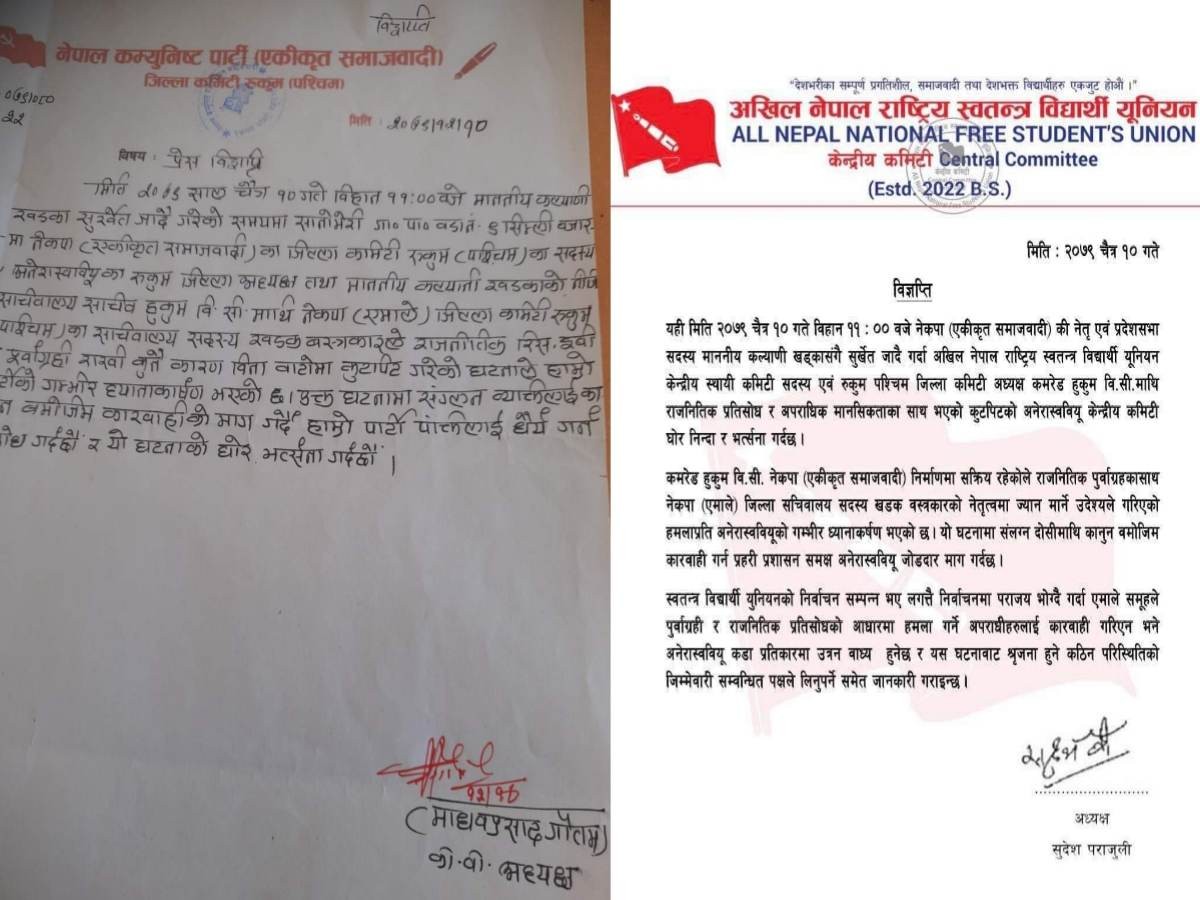 विज्ञप्ति
नेपाल कम्युनिष्ट पार्टी (एकीकृत समाजवादी)
जिल्ला कमिटी रुकुम (पश्चिम)
०७९।०८०
२२
मिति : २०७९।१२।१०
विषय : प्रेस विज्ञप्ति
मिति २०७९ साल चैत्र १० गते विहान ११:०० बजे माननीय कल्याणी
खड्का सुर्खेत जादै गरेको समयमा सानीभेरी गा० पा० वडा नं. ६ सिम्ली बजार-
मा नेकपा (एकीकृत समाजवादी) का जिल्ला कमिटी रुकुम (पश्चिम) का सदस्य
अनेरास्ववियूका रुकुम जिल्ला अध्यक्ष तथा माननीय कल्यानी खड्काको निजि
सचिवालय सचिव हुकुम वि. सी. माथि नेकपा (एमाले) जिल्ला कमिटी रुकुम
पश्चिम) का सचिवालय सदस्य खडक वस्त्रकारले राजनीतिक रिस. इवी
पूर्वाग्रही राखी कुनै कारण विना बाटोमा कुटपिट गरेको घटनाले हाम्रो
गम्भीर ध्यानाकार्षण भएको छ। उक्त घटनामा संग्लन व्याक्तिलाई का
न वमोजिम कारवाहीको माग गर्दै हाम्रो पार्टी पंक्तिलाई धैर्य गर्न
गर्दछौं र यो घटनाको घोर भर्त्सना गर्दछौं ।
१२/१०
(माधव प्रसाद गौतम)
अध्यक्ष
"देशभरीका सम्पूर्ण प्रगतिशील, समाजवादी तथा देशभक्त विद्यार्थीहरु एकजुट होऔं ।"
अखिल नेपाल राष्ट्रिय स्वतन्त्र विद्यार्थी यूनियन
ALL NEPAL NATIONAL FREE STUDENT'S UNION
केन्द्रीय कमिटी Central Committee
(Estd. 2022 B.S.)
मिति : २०७९ चैत्र १० गते
विज्ञप्ति
यही मिति २०७९ चैत्र १० गते विहान ११ : ०० बजे नेकपा (एकीकृत समाजवादी) की नेतृ एवं प्रदेशसभा
सदस्य माननीय कल्याणी खड्कासंगै सुर्खेत जादै गर्दा अखिल नेपाल राष्ट्रिय स्वतन्त्र विद्यार्थी यूनियन
केन्द्रीय स्थायी कमिटी सदस्य एवं रुकुम पश्चिम जिल्ला कमिटी अध्यक्ष कमरेड हुकुम वि.सी.माथि
राजनितिक प्रतिसोध र अपराधिक मानसिकताका साथ भएको कुटपिटको अनेरास्ववियू केन्द्रीय कमिटी
घोर निन्दा र भर्त्सना गर्दछ ।
कमरेड हुकुम वि.सी. नेकपा (एकीकृत समाजवादी) निर्माणमा सक्रिय रहेकोले राजनितिक पुर्वाग्रहकासाथ
नेकपा (एमाले) जिल्ला सचिवालय सदस्य खडक वस्त्रकारको नेतृत्वमा ज्यान मार्ने उदेश्यले गरिएको
हमलाप्रति अनेरास्ववियूको गम्भीर ध्यानाकर्षण भएको छ । यो घटनामा संलग्न दोसीमाथि कानुन वमोजिम
कारवाही गर्न प्रहरी प्रशासन समक्ष अनेरास्ववियू जोडदार माग गर्दछ ।
स्वतन्त्र विद्यार्थी युनियनको निर्वाचन सम्पन्न भए लगत्तै निर्वाचनमा पराजय भोग्दै गर्दा एमाले समूहले
पुर्वाग्रही र राजनितिक प्रतिसोधको आधारमा हमला गर्ने अपराधीहरुलाई कारवाही गरिएन भने
अनेरास्ववियू कडा प्रतिकारमा उत्रन वाध्य हुनेछ र यस घटनावाट श्रृजना हुने कठिन परिस्थितिको
जिम्मेवारी सम्वन्धित पक्षले लिनुपर्ने समेत जानकारी गराइन्छ ।
अध्यक्ष
सुदेश पराजुली